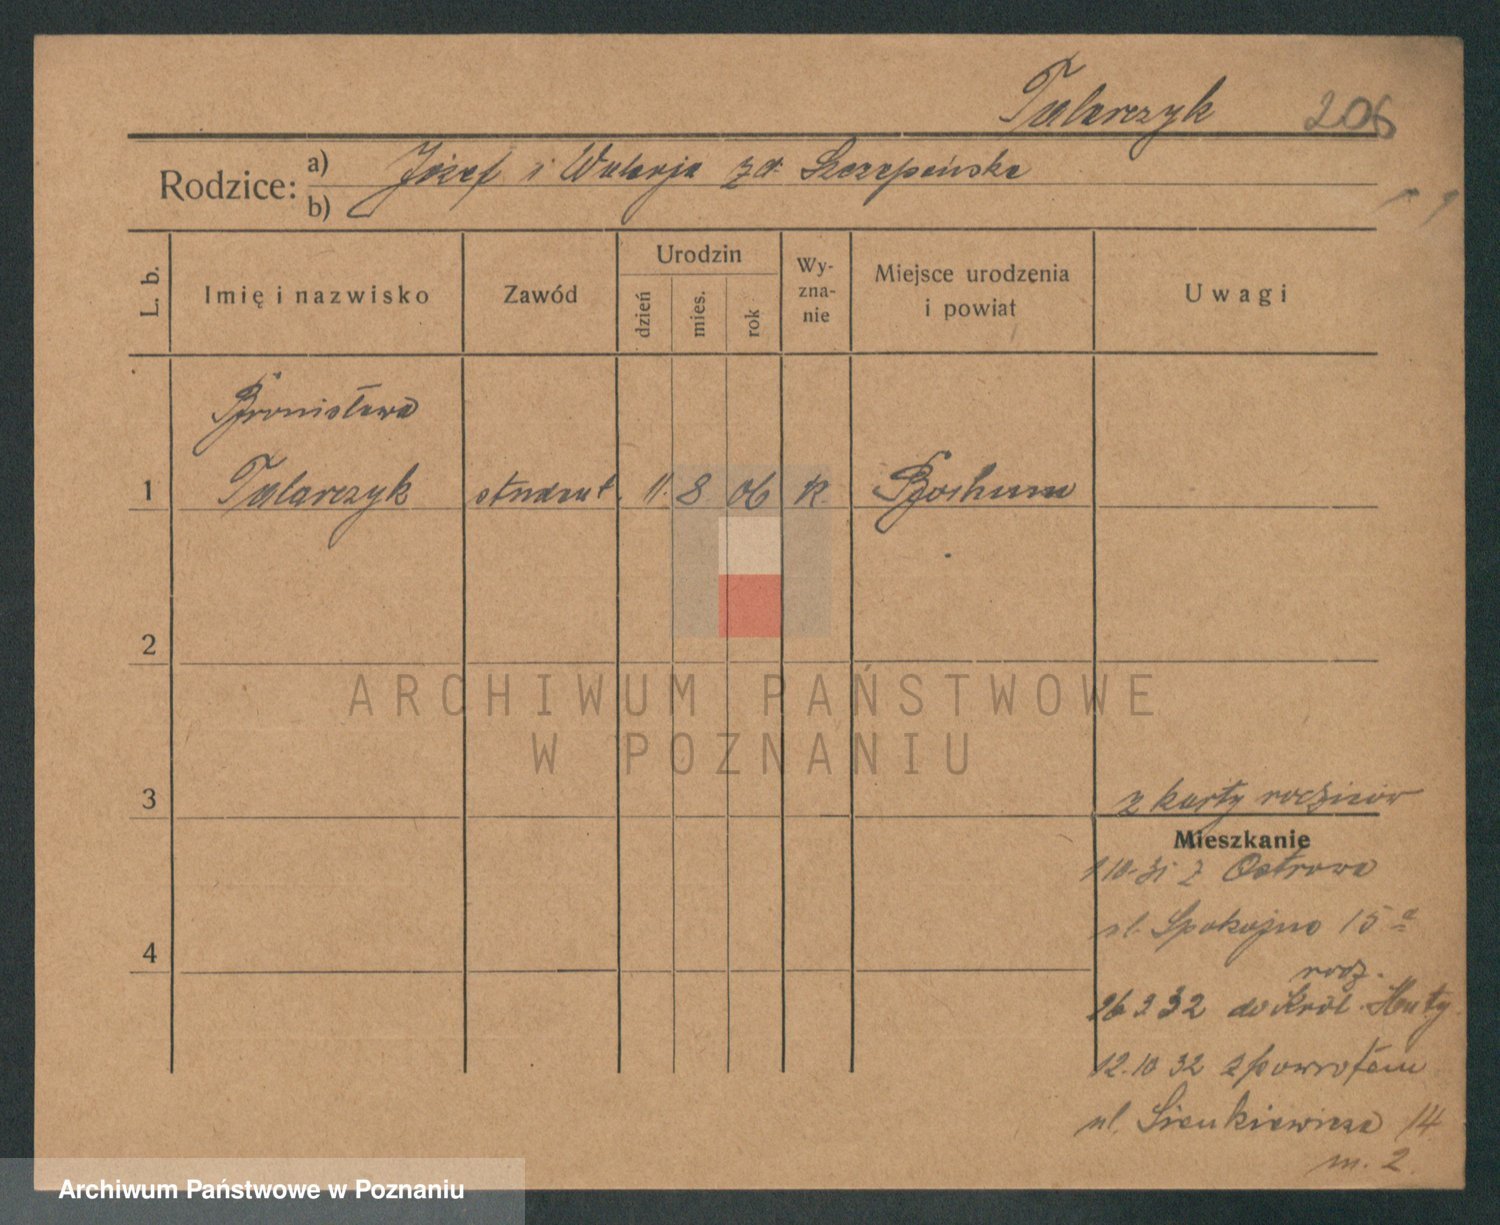 Talarczyk 206
Rodzice: a) Józef i Walerja zd. Szczepańska
b)
L. b.
Imię i nazwisko
Zawód
Urodzin
dzień
mies.
rok
Wy-
zna-
nie
Miejsce urodzenia
i powiat
Uwagi
Bronisława
1 Talarczyk student. 11. 8 06 k. Bochum
2
ARCHIWUM PAŃSTWOWE
W POZNANIU
3
z karty rodziców
Mieszkanie
1 10 31 z Ostrowa
ul. Spokojna 15 a
rodz.
26 2 32 do Król. Huty
12. 10 32 z powrotem
4
ul. Sienkiewicza 14
m. 2
Archiwum Państwowe w Poznaniu